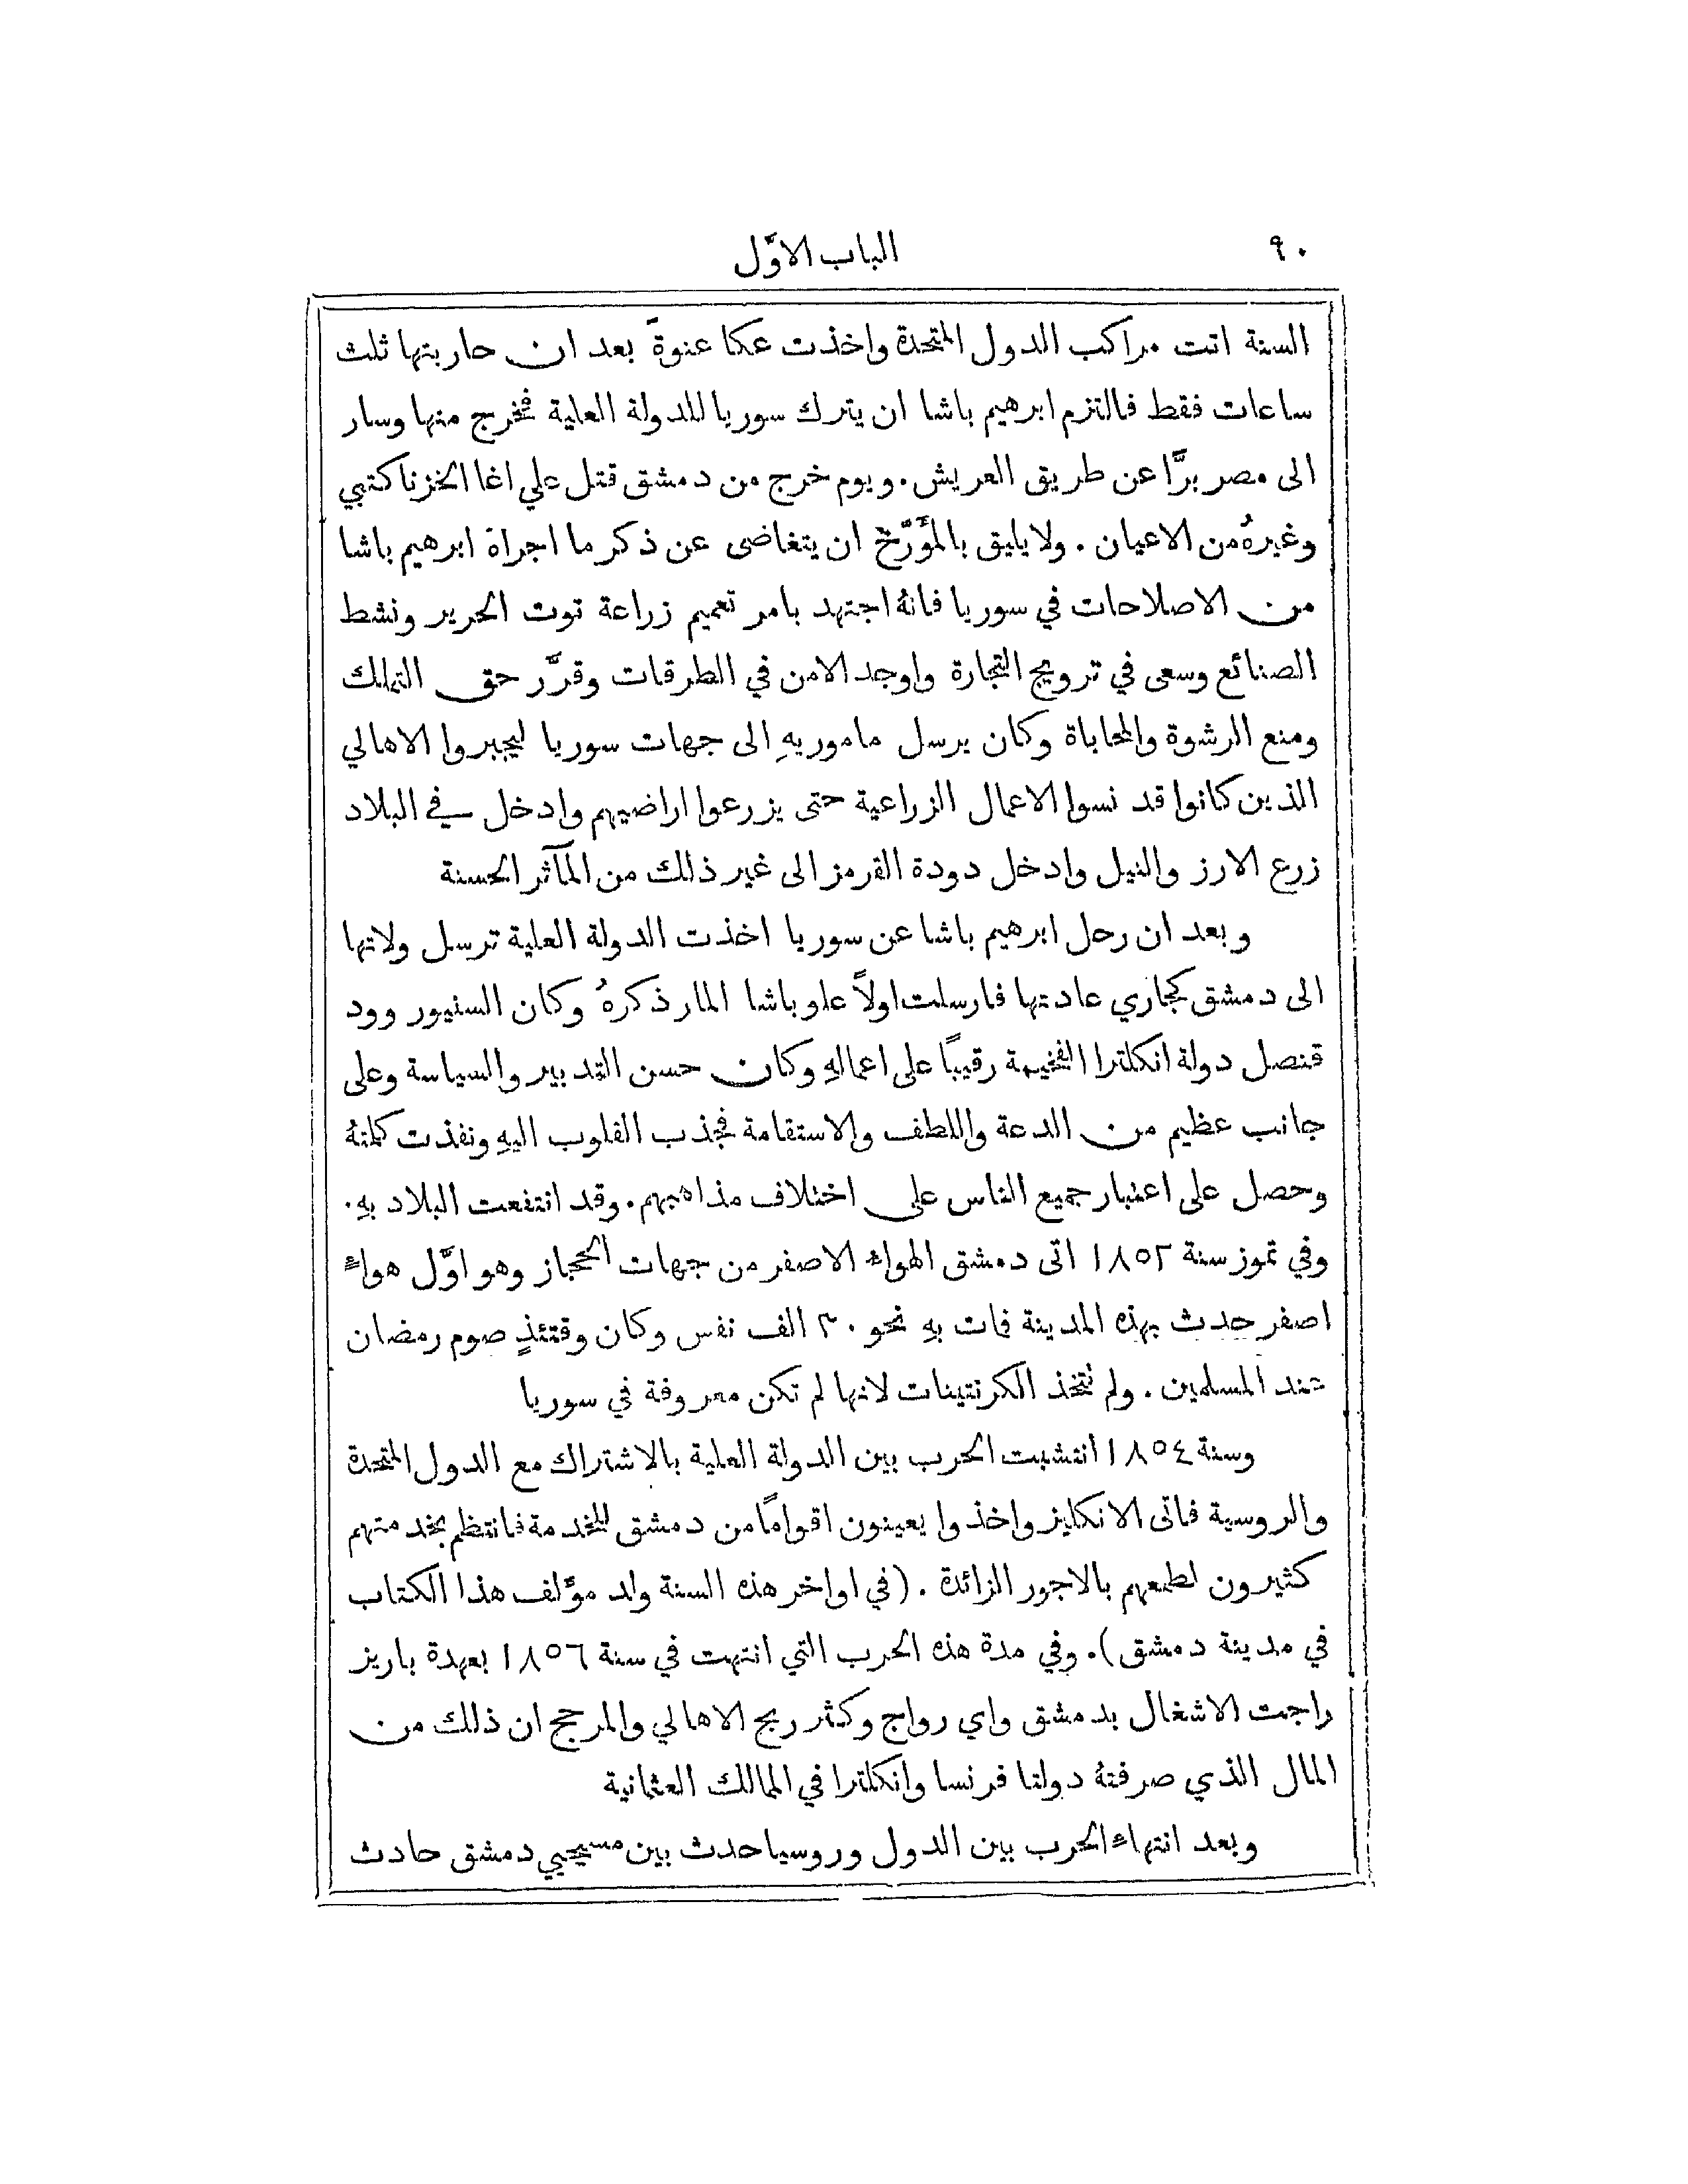 ٩٠
الباب الاوَّل
السنة اتت مراكب الدول المتحدة واخذت عكا عنوةً بعد ان حاربتها ثلث
ساعات فقط فالتزم ابرهيم باشا ان يترك سوريا للدولة العلية فخرج منها وسار
الى مصر برًّا عن طريق العريش. ويوم خرج من دمشق قتل علي اغا الخزناكتبي
وغيرهُ من الاعيان. ولا يليق بالمؤَرّخ ان يتغاضى عن ذكر ما اجراهُ ابرهيم باشا
من الاصلاحات في سوريا فانهُ اجتهد بامر تعميم زراعة توت الحرير ونشط
الصنائع وسعى في ترويج التجارة واوجد الامن في الطرقات وقرَّر حق التملك
ومنع الرشوة والمحاباة وكان يرسل ماموريهِ الى جهات سوريا ليجبروا الاهالي
الذين كانوا قد نسوا الاعمال الزراعية حتى يزرعوا اراضيهم وادخل في البلاد
زرع الارز والنيل وادخل دودة القرمز الى غير ذلك من المآثر الحسنة
وبعد ان رحل ابرهيم باشا عن سوريا اخذت الدولة العلية ترسل ولاتها
الى دمشق كجاري عادتها فارسلت اولاً علو باشا المار ذكرهُ وكان السنيور وود
قنصل دولة انكلترا الفخيمة رقيبًا على اعمالهِ وكان حسن التدبير والسياسة وعلى
جانب عظيم من الدعة واللطف والاستقامة فجذب القلوب اليهِ ونفذت كلمتهُ
وحصل على اعتبار جميع الناس على اختلاف مذاهبهم. وقد انتفعت البلاد بهِ.
وفي تموز سنة ١٨٥٢ اتى دمشق الهواء الاصفر من جهات الحجاز وهو اوَّل هواء
اصفر حدث بهذه المدينة فمات بهِ نحو ٣٠ الف نفس وكان وقتئذٍ صوم رمضان
عند المسلمين. ولم تتخذ الكرنتينات لانها لم تكن معروفة في سوريا
وسنة ١٨٥٤ انتشبت الحرب بين الدولة العلية بالاشتراك مع الدول المتحدة
والروسية فاتى الانكليز واخذوا يعينون اقوامًا من دمشق للخدمة فانتظم بخدمتهم
كثيرون لطمعهم بالاجور الزائدة. (في اواخر هذه السنة ولد مؤَلف هذا الكتاب
في مدينة دمشق). وفي مدة هذه الحرب التي انتهت في سنة ١٨٥٦ بعهدة باريز
راجت الاشغال بدمشق واي رواج وكثر ربح الاهالي والمرجح ان ذلك من
المال الذي صرفتهُ دولتا فرنسا وانكلترا في الممالك العثمانية
وبعد انتهاء الحرب بين الدول وروسيا حدث بين مسيحيي دمشق حادث